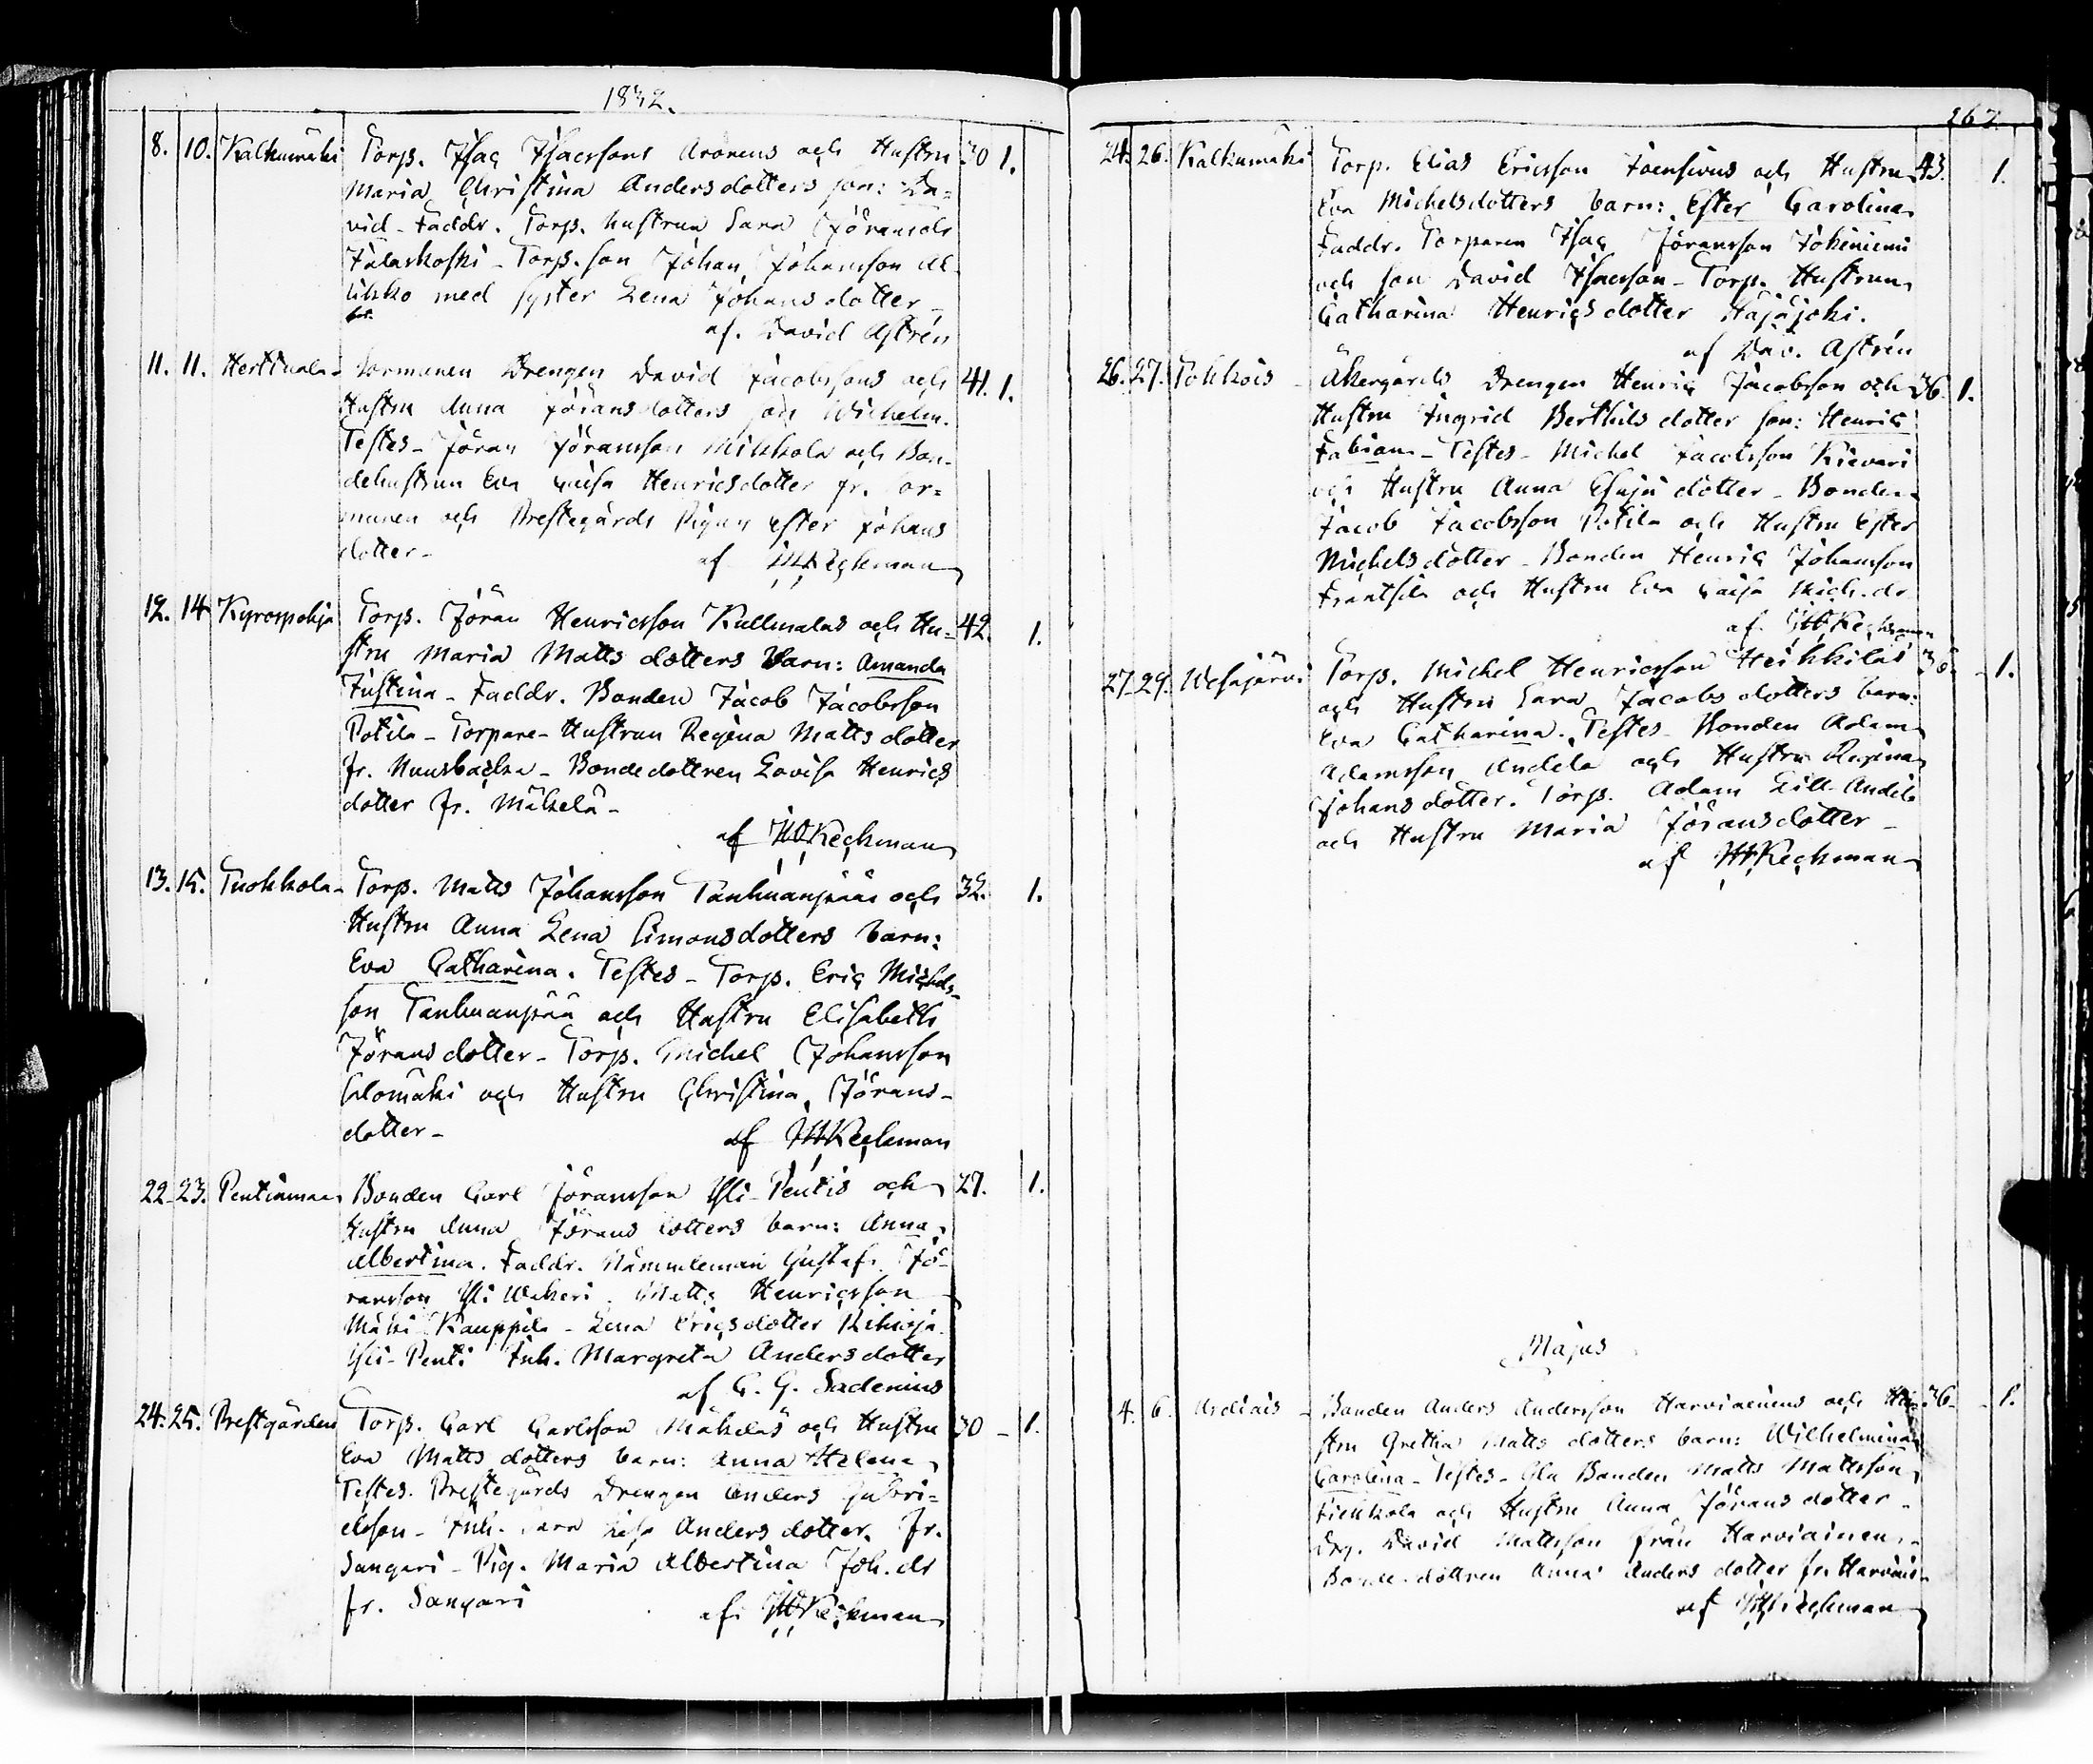 1832.
8. 10. Kalkumäki Torp. Isac Isacssons Aronens och Hustru 30 1.
Maria Christina Andersdotters son: Da=
vid - Faddr. Torp. hustrun Sara Jöransdr
Jalaskoski - Torp. son Johan Johansson Al-
likko med syster Lena Johansdotter
af. David Astrén
11. 11. Herttuala - Sormunen Drengen David Jacobssons och 41. 1.
Hustru Anna Jöransdotters son Wichelm.
Testes - Jöran Jöransson Mikkola och Bon-
dehustrun Eva Caisa Henricsdotter fr. Sor=
munen och Prestegårds Pigan Ester Johans
dotter - af Keckman
12. 14 Kyrospohja Torp. Jöran Henricsson Kullmalas och Hu= 42. 1.
stru Maria Matts dotters Barn: Amanda
Justina - Faddr. Bonden Jacob Jacobsson
Potila - Torpare-Hustrun Regina Mattsdotter
fr. Nuusbacka - Bondedottren Lovisa Henrics
dotter fr. Mäkelä -
af Keckman
13. 15. Tuokkola - Torp. Matts Johansson Tanhuanpääs och 32. 1.
Hustru Anna Lena Simonsdotters barn:
Eva Catharina. Testes - Torp. Eric Michels-
son Tanhuanpää och Hustru Elisabeth
Jöransdotter - Torp. Michel Johansson
Salomäki och Hustru Christina Jörans-
dotter - af Keckman
22. 23. Pentinmaa Bonden Carl Jöransson Yli-Pentis och 27. 1.
Hustru Anna Jörans dotters barn: Anna
Albertina. Faddr. Nämndeman Gustaf Jö-
ransson Yli Wakeri. Matts Henricsson
Mäki Kauppila - Lena Ericsdotter
Yli-Penti Inh. Margreta Andersdotter
af G. G. Sadenius
24. 25. Prestgården Torp. Carl Carlsson Mäkeläs och Hustru 30 - 1.
Eva Matts dotters barn: Anna Helena
Testes. Prestegårds Drengen Anders Gabri=
elsson - Inh. Sara Lisa Andersdotter fr.
Sangari - Pig. Maria Albertina Joh. dr
fr. Sangari af: Keckman
267.
24. 26. Kalkumäki Torp. Elias Ericsson Joensivus och Hustru 43. 1.
Eva Michelsdotters barn: Ester Carolina
Faddr. Torparen Isac Jöransson Jokiniemi
och son David Isacsson - Torp. Hustrun
Catharina Henricsdotter Hajajoki.
af Dav. Astrén
26. 27. Tokkois - Åkergårds Drengen Henric Jacobsson och 36. 1.
Hustru Ingrid Berthils dotter son: Henric
Fabian - Testes - Michel Jacobsson Kieveri
och Hustru Anna Esaju dotter - Bonden
Jacob Jacobsson Potila och Hustru Ester
Michelsdotter - Bonden Henric Johansson
Frantsila och Hustru Eva Caisa Mich. dr
af. Keckman
27. 29. Wesajärvi Torp. Michel Henricsson Heikkiläs - 1.
och Hustru Sara Jacobs dotters barn:
Eva Catharina. Testes - Bonden Adam
Adamsson Andela och Hustru Regina
Johansdotter. Torp. Adam Lill-Andila
och Hustru Maria Jöransdotter -
af Keckman
Majus
4. 6. - Bonden Anders Andersson Harviainens och Hu- 36 - 1.
stru Gretha Matts dotters barn: Wilhelmina
Carolina - Testes - Gla Bonden Matts Mattsson
och Hustru Anna Jörans dotter -
Drg. David Mattsson från Harviainen -
Bonde-dottren Anna Anders dotter fr. Harviais -
af Keckman